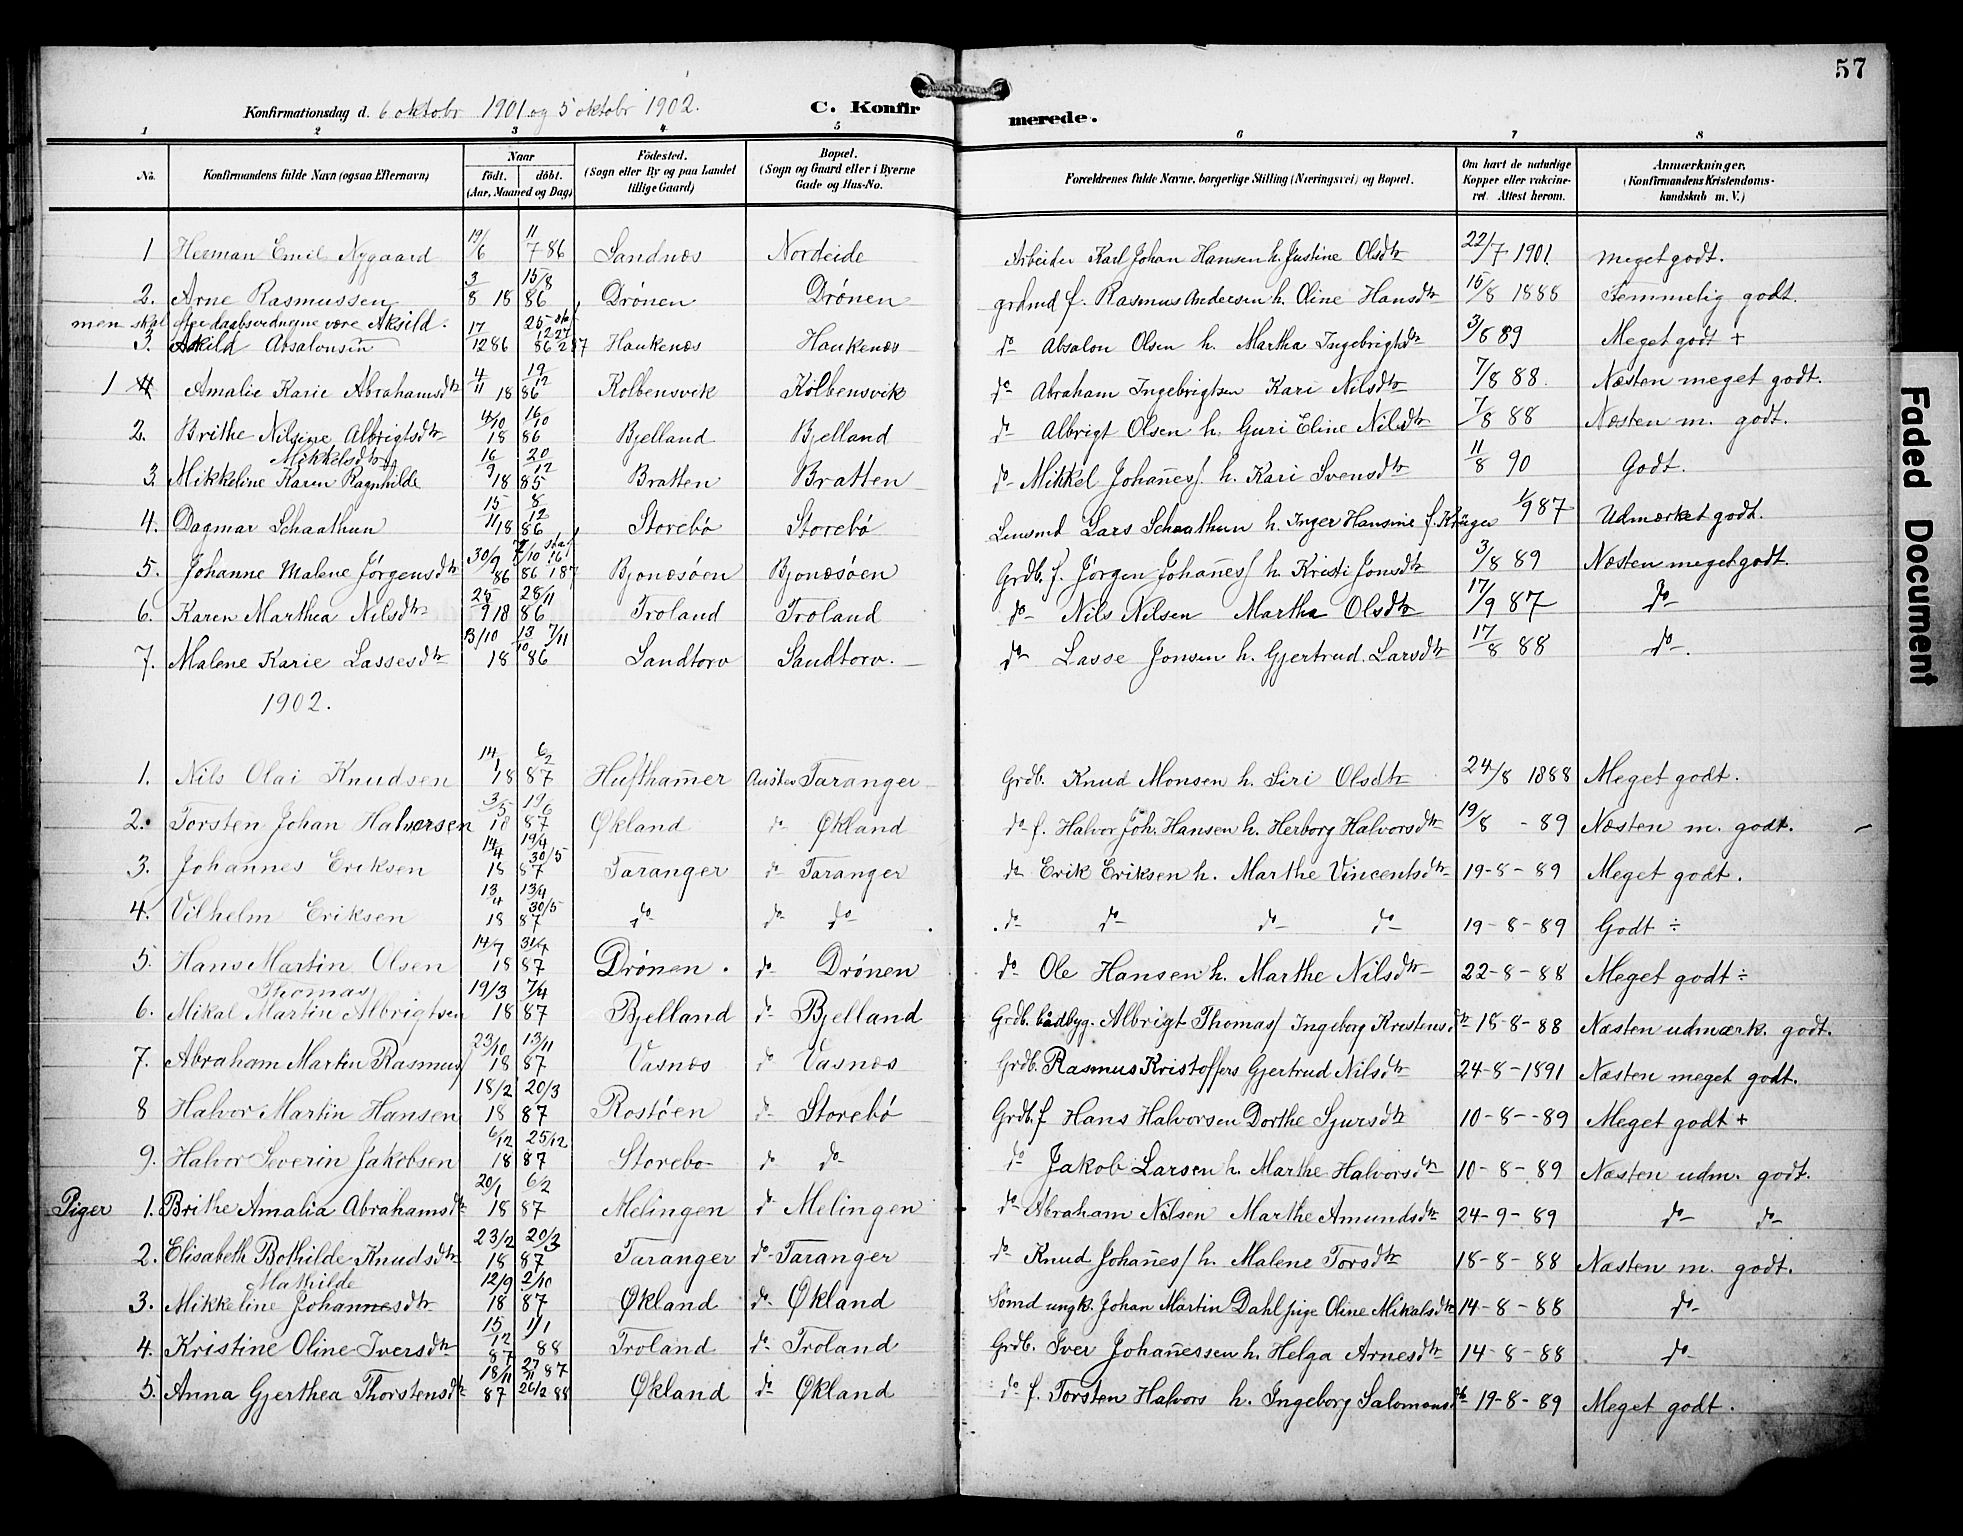 57
Konfirmationsdag d. 6 oktobr 1901 og 5 oktobr 1902. C. Konfirmerede.
1 2 3 4 5 6 7 8
No. Konfirmandens fulde Navn (ogsaa Efternavn) Naar født. døbt. (Aar, Maaned og Dag) Fødested. (Sogn eller By og paa Landet tillige Gaard) Bopæl. (Sogn og Gaard eller i Byerne Gade og Hus-No. Forældrenes fulde Navne, borgerlige Stilling (Næringsvei) og Bopæl. Om havt de naturlige Kopper eller vakcineret. Attest herom. Anmærkninger. (Konfirmandens Kristendomskundskab m. V.)
1 Herman Emil Nygaard 19/6 11/7 86 Sandnæs Nordeide Arbeider Karl Johan Hansen h. Justine Olsdtr 22/7 1901. meget godt.
2. Arne Rasmussen 3/8 18 15/8 86 Drönen Drönen grdmd f. Rasmus Andersen h. Oline Hansdtr 15/8 1888 Temmelig godt.
men skal efter daabsordnegne være Aksild.
3. Askild Absalonsen 17/12 86 Haukenæs Haukenæs do Absalon Olsen h. Martha Ingebrigtsdtr 3/8 89 Meget godt +
1 4 Amalie Karie Abrahamsdtr 4/11 18 19/12 86 Kolbensvik Kolbensvik do Abraham Ingebrigtsen Kari Nilsdtr 7/8 88. Næsten meget godt.
2. Brithe Nilsine Albrigtsdtr 4/10 18 16/10 86 Bjelland Bjelland do Albrigt Olsen h. Guri Eline Nilsdtr 7/8 88 Næsten m. godt.
Mikkelsdtr
3 Mikkeline Karen Ragnhilde 16/9 18 20/12 85 Bratten Bratten do Mikkel Johañes/ h. Kari Svensdtr 11/8 90 Godt.
4. Dagmar Schaathun 15/11 18 8/12 86 Storebö Storebö Lensmd Lars Schaathun h. Inger Hansine f. Krüger 1/9 87 Udmærket godt.
5. Johanne Malene Jörgensdtr 30/9 86 Bjonæsöen Bjonæsöen Grdb. f. Jörgen Johañes/ h. Kristi Jonsdtr 3/8 89 Næsten meget godt.
6. Karen Marthea Nilsdtr 25/9 18 28/11 86 Troland Troland do Nils Nilsen Martha Olsdtr 17/9 87 do
7. Malene Karie Lassesdtr 13/10 18 13/10 7/11 86 Sandtorv Sandtorv. do Lasse Jonsen h. Gjertrud Larsdtr 17/8 88 do.
1902.
1. Nils Olai Knudsen 14/1 18 6/2 87 Huftham̃er Taranger Grdb. Knud Monsen h. Siri Olsdtr 24/8 1888 Meget godt.
2. Torsten Johan Halvorsen 3/5 18 19/6 87 Økland do Økland do f. Halvor Joh. Hansen h. Herborg Halvorsdtr 19/8 - 89 Næsten m. godt.
3. Johannes Eriksen 14/4 18 19/4 30/5 87 Taranger do Taranger do Erik Eriksen h. Marthe Vincentsdtr 19-8-89 Meget godt.
4. Vilhelm Eriksen 13/4 18 13/4 30/5 87 do do do do do do do 19-8-89 Godt ÷
5. Hans Martin Olsen 14/7 18 31/7 87 Drönen. do Drönen do Ole Hansen h. Marthe Nilsdtr 22-8-88 Meget godt ÷
Thomas/
6. Mikal Martin Albrigtsen 19/3 18 7/4 87 Bjelland do Bjelland Grdb. baadbyg. Albrigt Thomas/ Ingeborg Kristensdtr 18-8-88 Næsten udmærk. godt.
7. Abraham Martin Rasmus/ 23/10 18 13/11 87 Vasnæs do Vasnæs Grdb. Rasmus Kristoffers Gjertrud Nilsdtr 24-8-1891 Næsten meget godt.
8 Halvor Martin Hansen 18/2 18 20/3 87 Rostöen do Storebö Grdb. f Hans Halvorsen Dorthe Sjursdtr 10-8--89 Meget godt +
9. Halvor Severin Jakobsen 6/12 18 25/12 87 Storebo do do do Jakob Larsen h. Marthe Halvorsdtr 10-8-89 Næsten udm. godt.
Piger 1. Brithe Amalia Abrahamsdtr 20/1 18 6/2 87 Melingen do Melingen do Abraham Nilsen Marthe Amundsdtr 24-9-89 do do
2. Elisabeth Bothilde Knudsdtr 23/2 18 20/3 87 Taranger do Taranger do Knud Johañes/ h. Malene Torsdtr 18-8-88 Næsten m. godt.
Mathilde
3. Mikkeline Johannesdtr 12/9 18 2/10 87 Økland do Økland Sömd ungk. Johan Martin Dahl pige Oline Mikalsdtr 14-8-88 do
4. Kristine Oline Iversdtr 15/12 87 1/1 88 Troland do Troland Grdb. Iver Johañessen h. Helga Arnesdtr 14-8-88 do
5. Anna Gjerthea Thorstensdtr 18/11 87 27/11 87 26/2 88 Økland do Økland do f. Torsten Halvors h. Ingeborg Salomonsdtr 19-8-89 Meget godt.
Faded Document